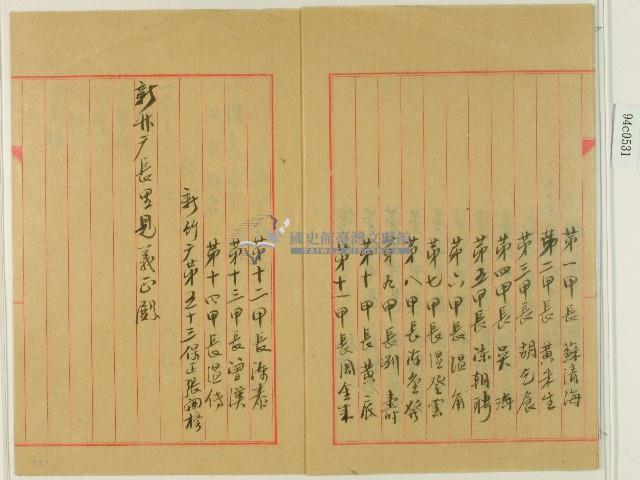 第一甲長 蘇清海
第二甲長 黃朱生
第三甲長 胡乞食
第四甲長 吳 海
第五甲長 陳朝聘
第六甲長 溫 角
第七甲長 溫登雲
第八甲長 陳金發
第九甲長 劉 壽
第十甲長 黃 辰
第十一甲長 周金來
第十二甲長 陳 泰
第十三甲長 曾 漢
第十四甲長 溫 傳
新竹廳第五十三保正 張
新竹廳長 里見義正殿
國史館臺灣文獻館
TAIWAN
94c0531